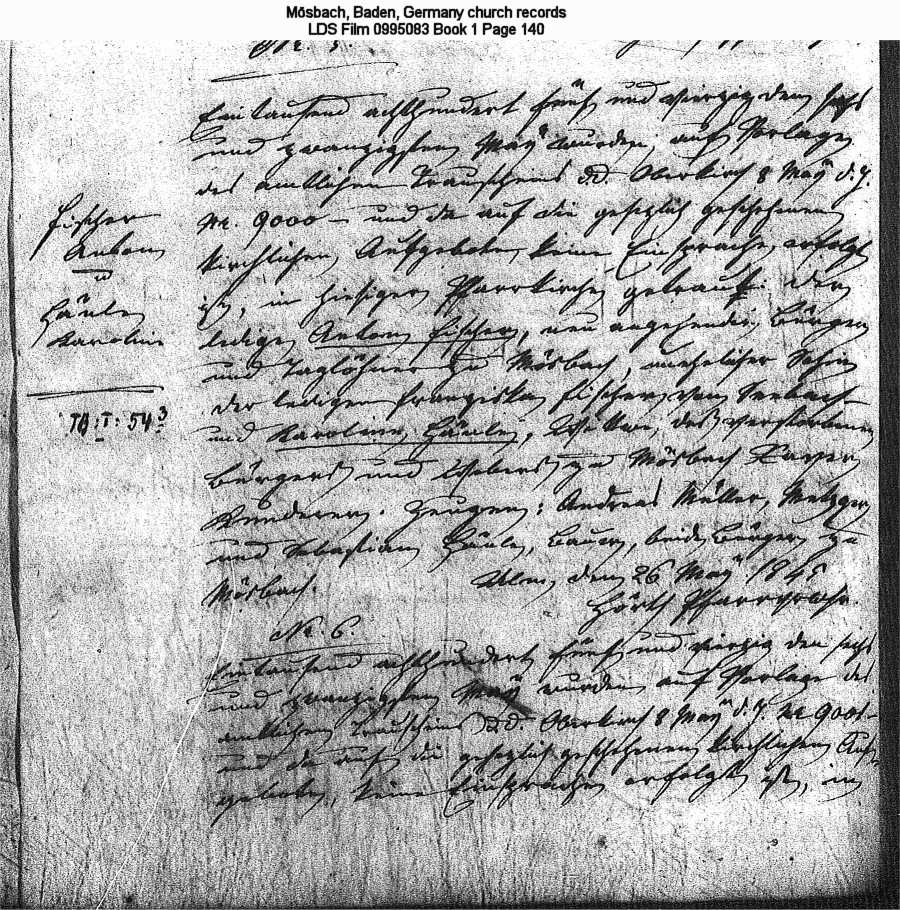 Mösbach, Baden, Germany church records
LDS Film 0995083 Book 1 Page 140
Eintausend achthundert fünf und vierzig den sechs
und zwanzigsten May wurden, auf Vorlage
des amtlichen Trauscheins d.d. Oberkirch 8 May d. J.
Nr. 9000 – und da auf die gesezlich geschehenen
kirchlichen Aufgebote, keine Einsprache, erfolgt
ist, in hiesiger Pfarrkirche getraut: der
ledige Anton Fischer, neu angehender Bürger
und Taglöhner zu Mösbach, unehelicher Sohn
der ledigen Franziska Fischer, von Seebach
und Karoline Häule, Wittwe, des verstorbenen
Bürgers und Webers zu Mösbach Xaver
Kunderer. Zeugen: Andreas Müller, Metzger
und Sebastian Häule, Bauer, beide Bürger zu
Mösbach. Ulm, den 26 May 1845
Pfarrverw.
Fischer
Anton
u
Häule
Karolina
TB: I: 54
No. 6.
Eintausend achthundert fünf und vierzig den sechs
und zwanzigsten May wurden auf Vorlage des
amtlichen Trauscheins d.d. Oberkirch 8 May d. J. Nr 9001 –
und da auf die gesezlich geschehenen kirchlichen Auf-
gebote, keine Einsprache erfolgt ist, in